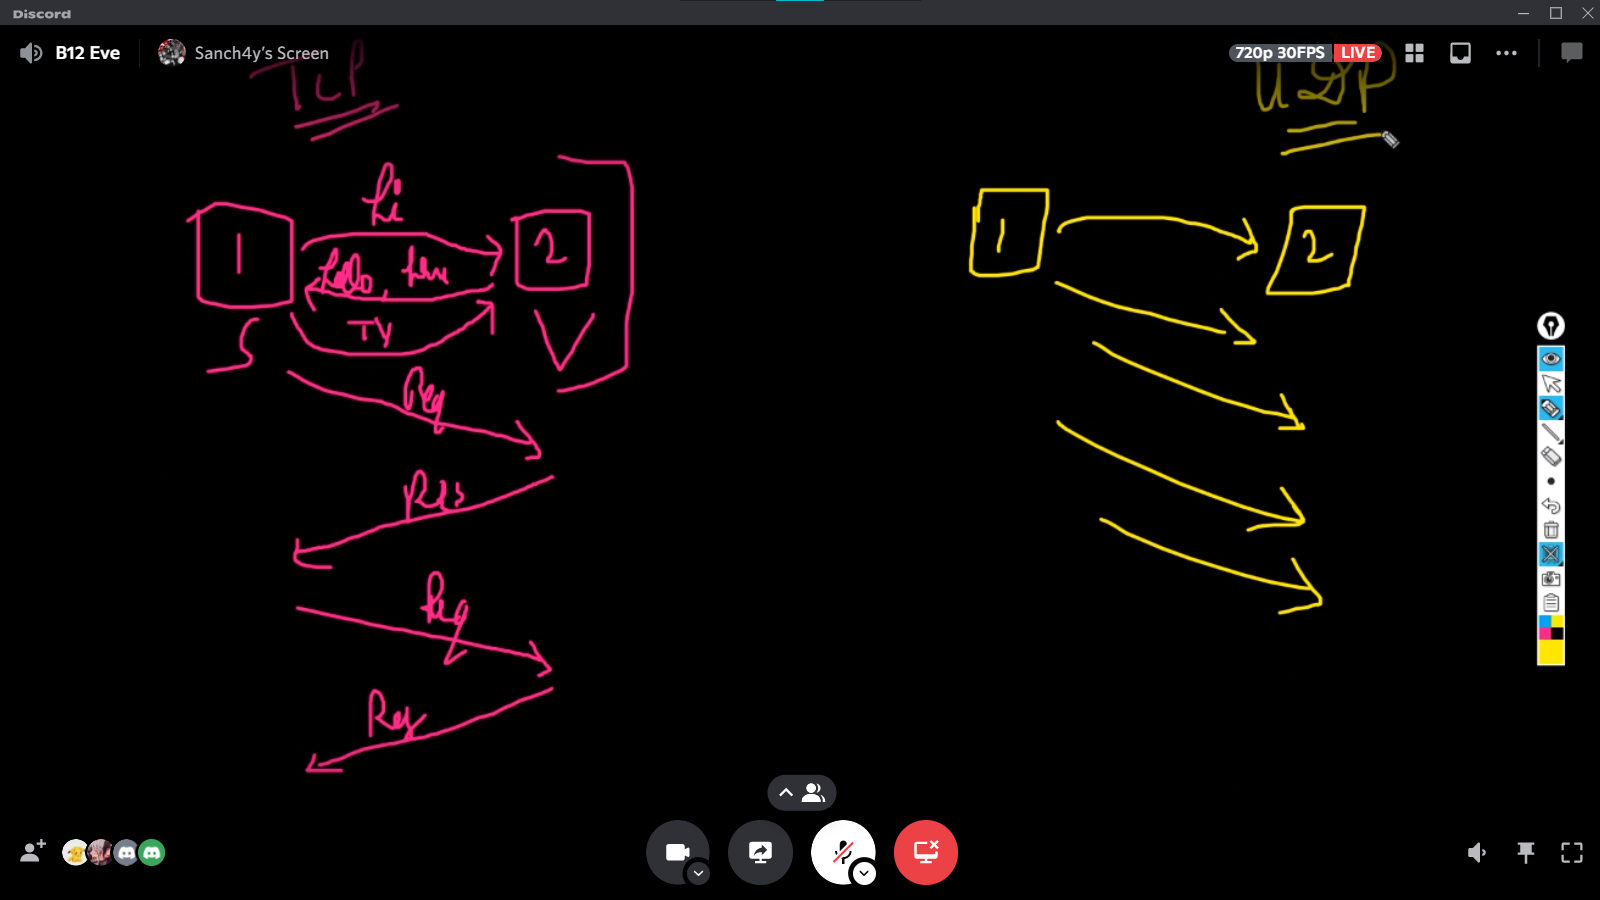 Discord
B12 Eve
Sanch4y's Screen
720p 30FPS LIVE
TCP
UDP
Hi
1
2
Hello, Hru
TY
S
V
Req
Res
Req
Res
1
2